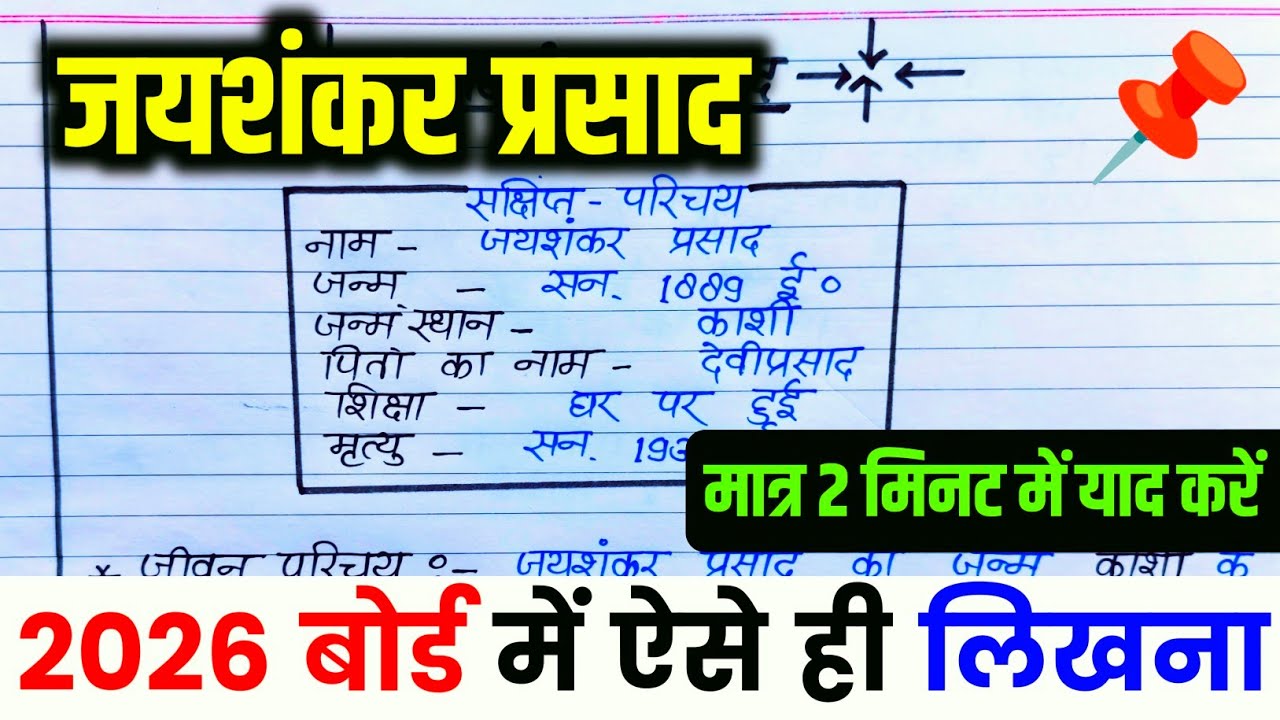 जयशंकर प्रसाद
सक्षिप्त - परिचय
नाम - जयशंकर प्रसाद
जन्म - सन. 1889 ई०
जन्म स्थान - काशी
पिता का नाम - देवीप्रसाद
शिक्षा - घर पर हुई
मृत्यु - सन.
मात्र 2 मिनट में याद करें
* जीवन परिचय :- जयशंकर प्रसाद का जन्म काशी के
2026 बोर्ड में ऐसे ही लिखना